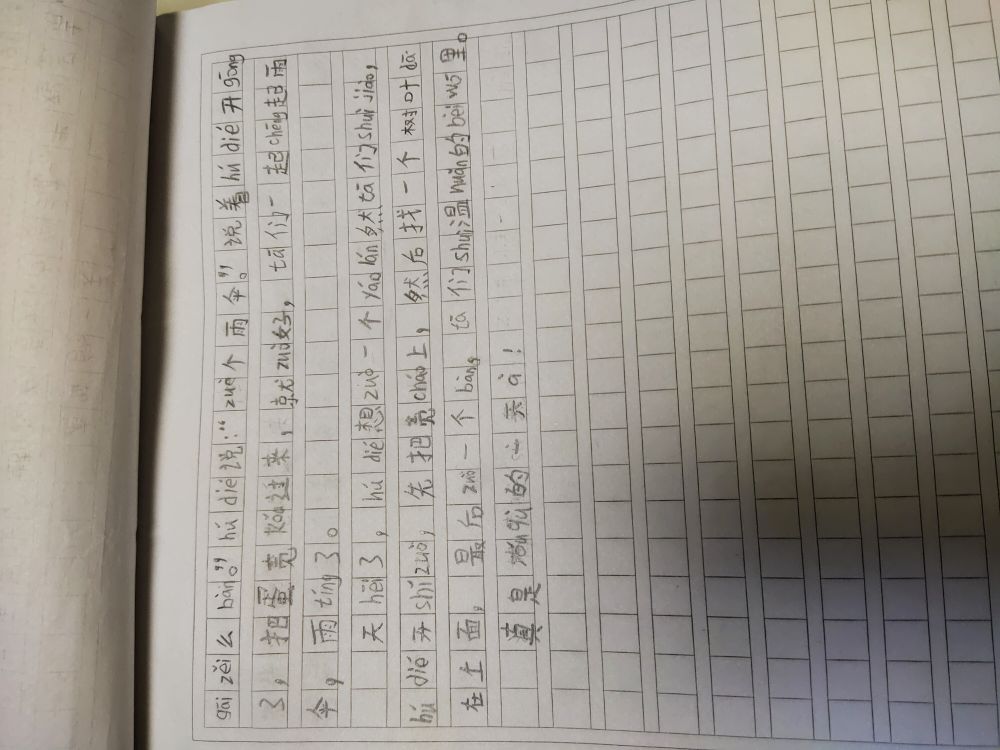 gāi zěi么bàn。”hú dié说:“zuò个雨伞。”说着hú dié开gōng
了,把蛋壳kóu过来,就zuò好,tā们一起chēng起雨
伞,雨tíng了。
天hēi了,hú dié想zuò一个yáo lán然tā们shuì jiào,
hú dié开shǐ zuò,先把壳cháo上,然后找一个树叶dā
在上面,最后zuò一个bàng tā们shuì温nuǎn的bèi wō里。
真是的一天à!